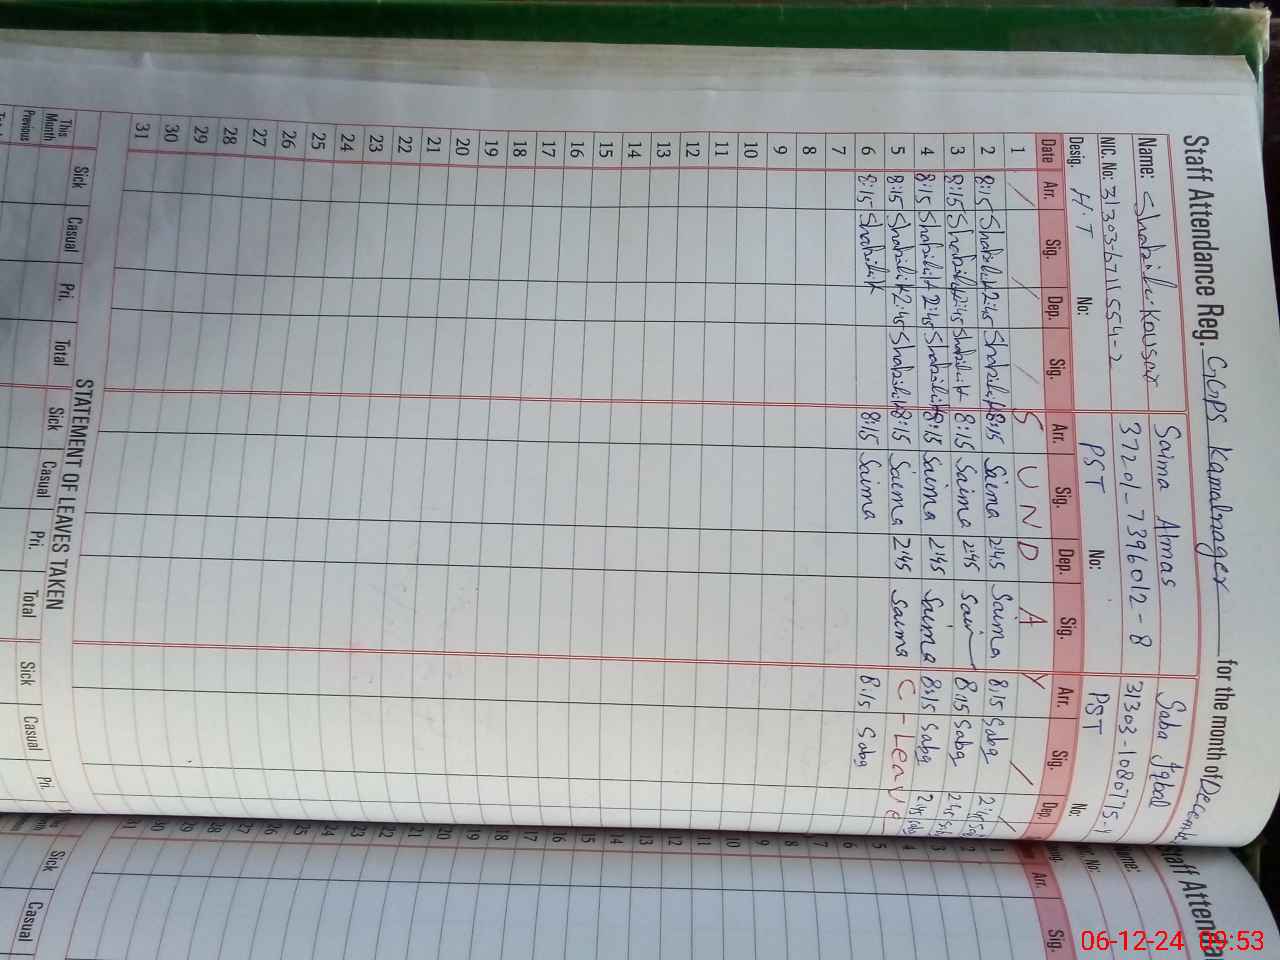 Staff Attendance Reg. GGPS Kamalnager for the month of Decemb
Name: Shabila Kousar Saima Almas Saba Iqbal
NIC. No: 31303-6711554-2 37201-7396012-8 31303-1080775-
Desig. H.T No: PST No: PST No:
Date Arr. Sig. Dep. Sig. Arr. Sig. Dep. Sig. Arr. Sig. Dep.
1 S U N D A Y
2 8:15 2:45 8:15 Saima 2:45 Saima 8:15 Saba 2:45
3 8:15 2:45 8:15 Saima 2:45 8:15 Saba 2:45
4 8:15 2:45 8:15 Saima 2:45 Saima 8:15 Saba 2:45
5 8:15 2:45 8:15 Saima 2:45 Saima C-Leave
6 8:15 8:15 Saima 8:15 Saba
7
8
9
10
11
12
13
14
15
16
17
18
19
20
21
22
23
24
25
26
27
28
29
30
31
STATEMENT OF LEAVES TAKEN
Sick Casual Pri. Total Sick Casual Pri. Total Sick Casual Pri.
This Month
Previous
Staff Attenda
Arr. Sig.
1
2
3
4
5
6
7
8
9
10
11
12
13
14
15
16
17
18
19
20
21
22
23
24
25
26
27
28
29
30
31
Sick Casual
06-12-24 09:53